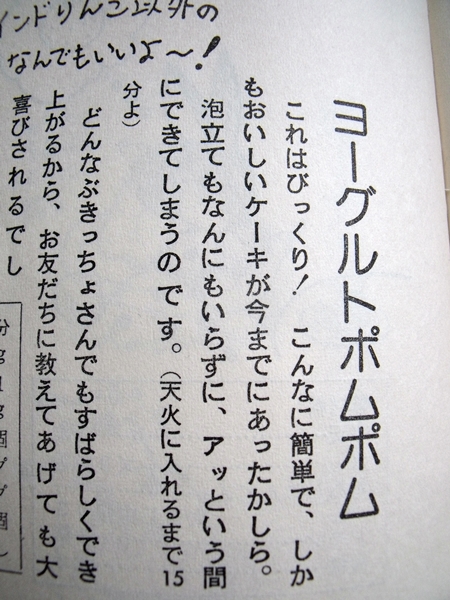 ヨーグルトポムポム
これはびっくり! こんなに簡単で、しか
もおいしいケーキが今までにあったかしら。
泡立てもなんにもいらずに、アッという間
にできてしまうのです。(天火に入れるまで15
分よ)
どんなぶきっちょさんでもすばらしくでき
上がるから、お友だちに教えてあげても大
喜びされるでし
インドりんご以外の
なんでもいいよ〜!